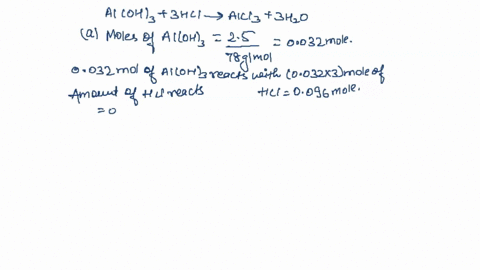 Al(OH)₃ + 3HCl → AlCl₃ + 3H₂O
(a) Moles of Al(OH)₃ = 2.5 / 78g/mol = 0.032 mole.
0.032 mol of Al(OH)₃ reacts with (0.032×3) mole of
Amount of HCl reacts HCl = 0.096 mole.
= 0